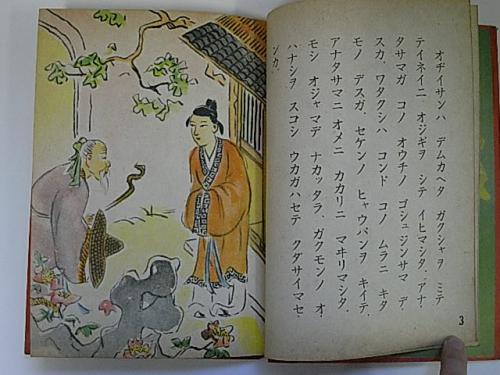 オヂイサンハ デムカヘタ ガクシャヲ ミテ
テイネイニ オジギヲ シテ イヒマシタ、アナ
タサマガ コノ オウチノ ゴシュジンサマ デ
スカ、ワタクシハ コンド コノ ムラニ キタ
モノ デスガ、セケンノ ヒャウバンヲ キイテ、
アナタサマニ オメニ カカリニ マヰリマシタ、
モシ オジャマデ ナカッタラ、ガクモンノ オ
ハナシヲ スコシ ウカガハセテ クダサイマセ
ンカ、
3